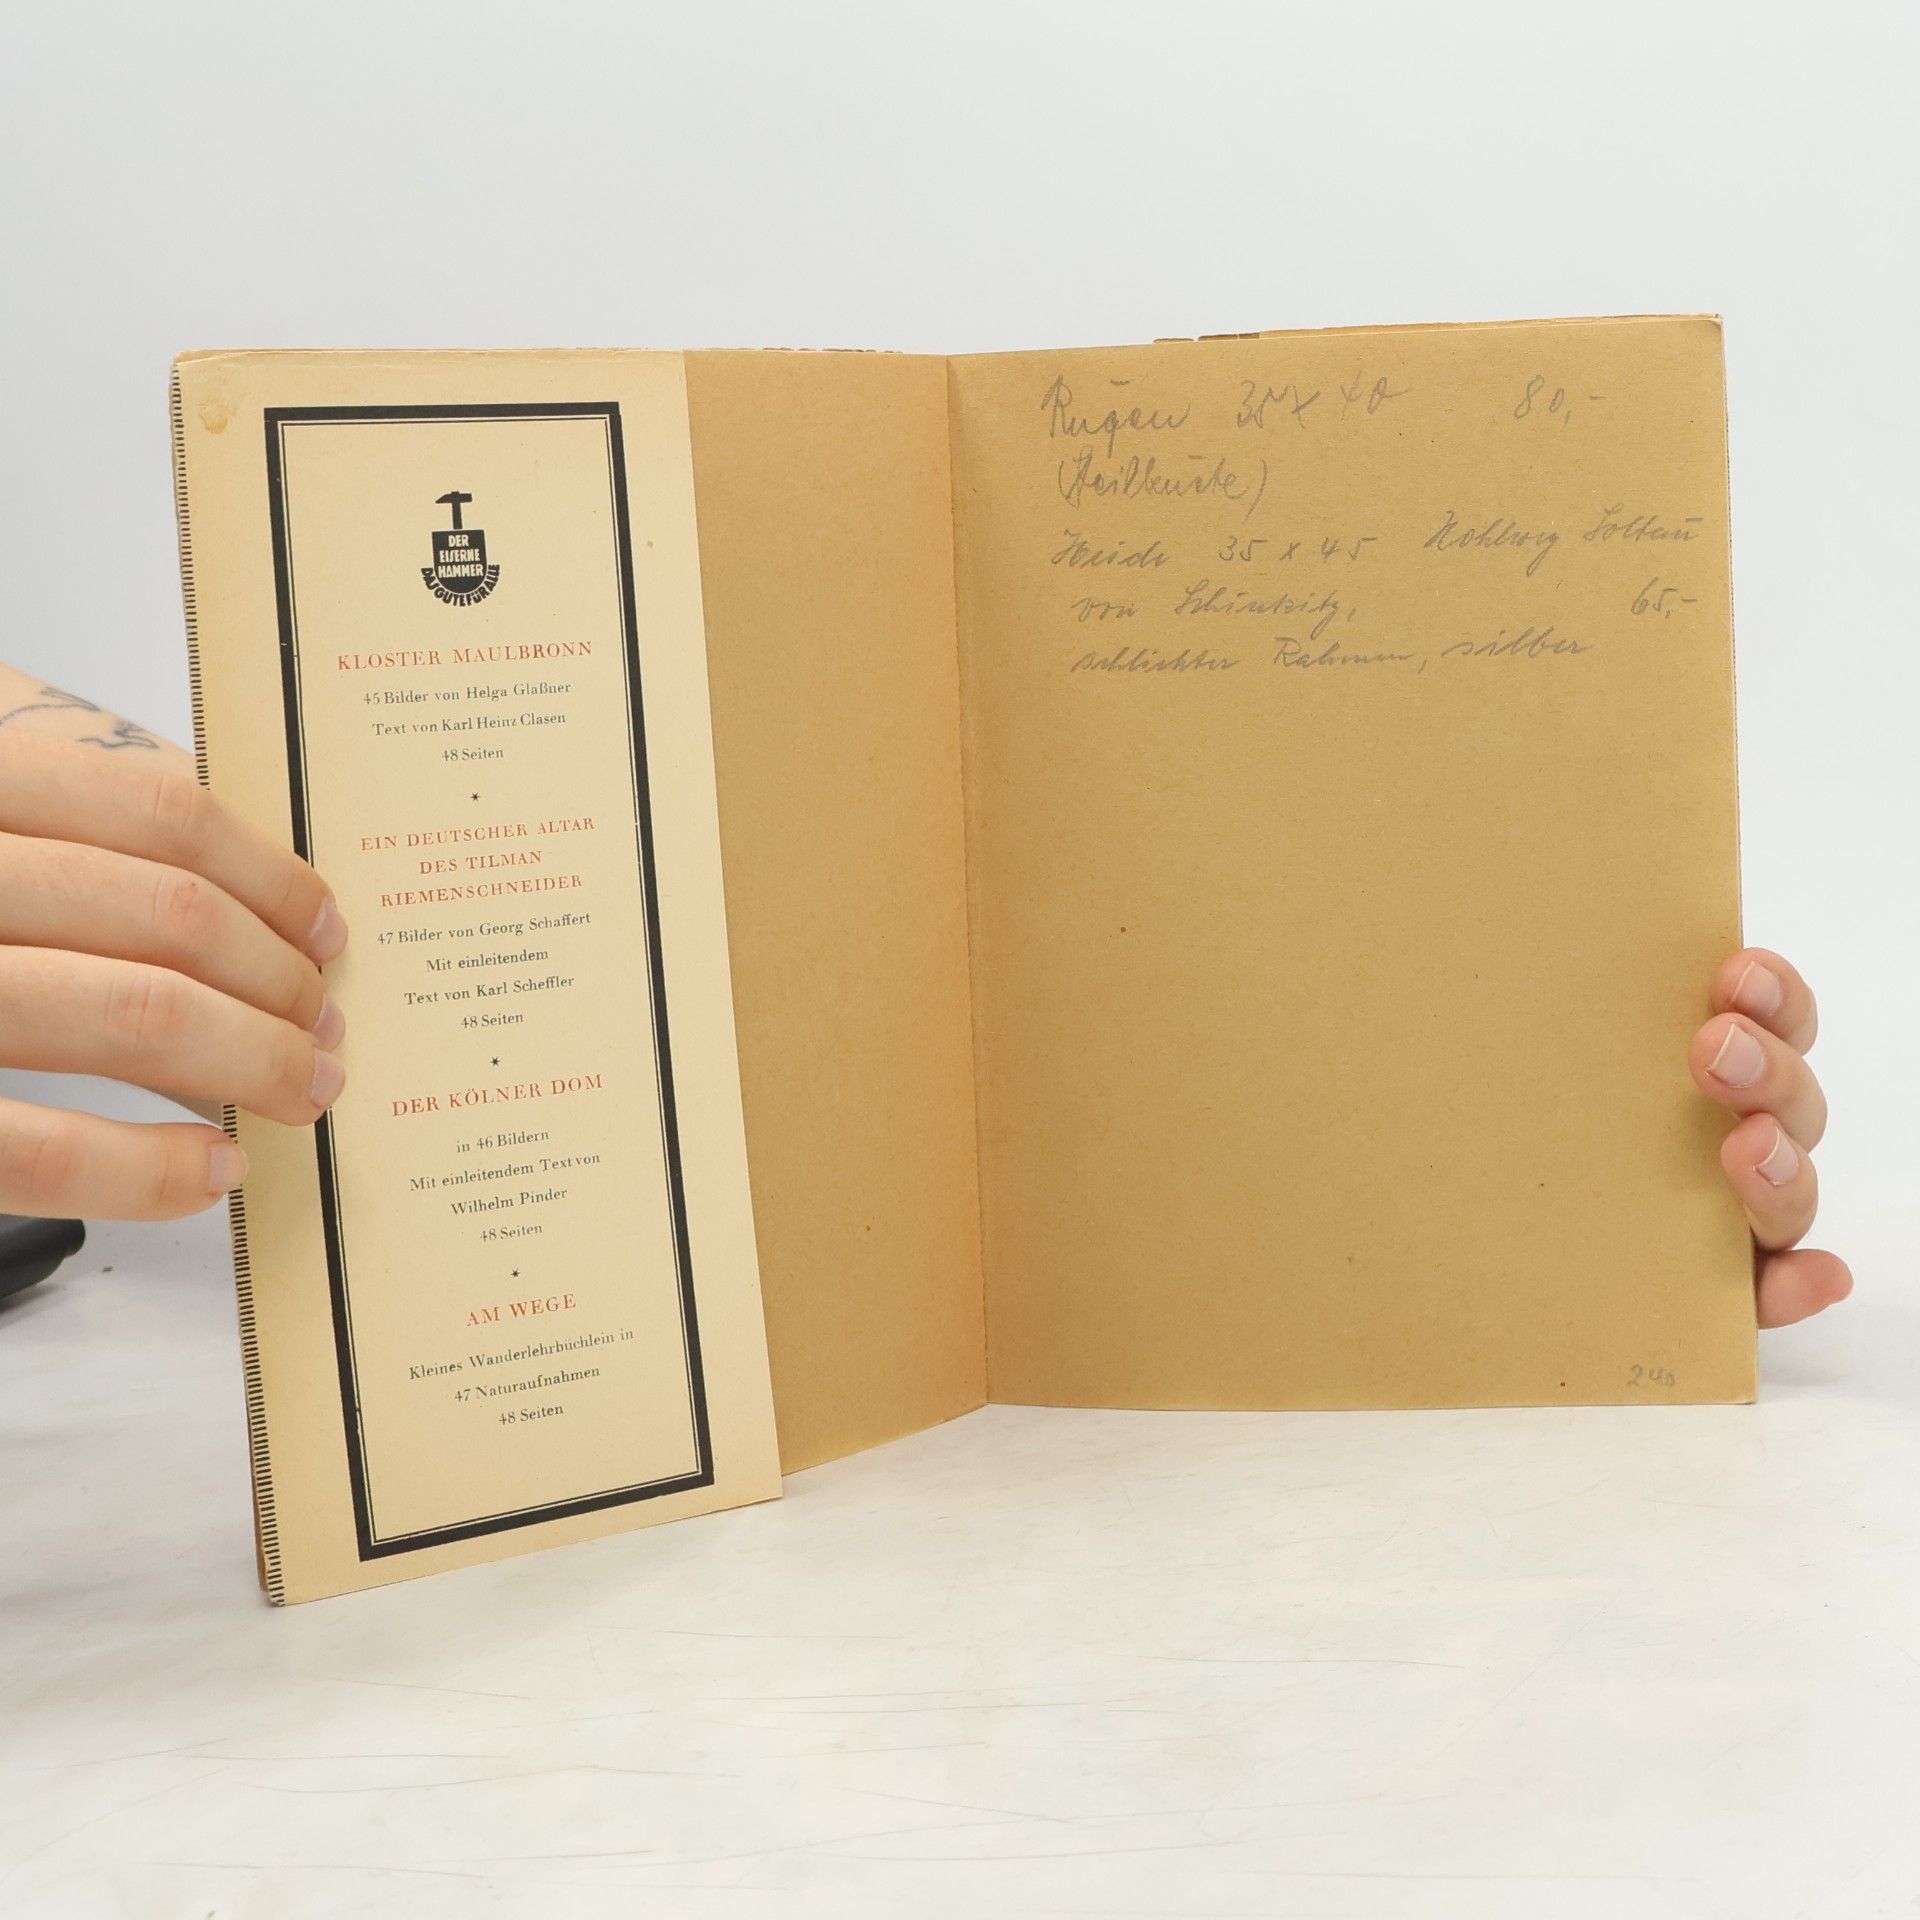 DER
EISERNE
HAMMER
DAS GUTE FÜR ALLE
KLOSTER MAULBRONN
45 Bilder von Helga Glaßner
Text von Karl Heinz Clasen
48 Seiten
*
EIN DEUTSCHER ALTAR
DES TILMAN
RIEMENSCHNEIDER
47 Bilder von Georg Schaffert
Mit einleitendem
Text von Karl Scheffler
48 Seiten
*
DER KÖLNER DOM
in 46 Bildern
Mit einleitendem Text von
Wilhelm Pinder
48 Seiten
*
AM WEGE
Kleines Wanderlehrbüchlein in
47 Naturaufnahmen
48 Seiten
Rügen 35 x 40 80,-
(Steilküste)
Heide 35 x 45 Hohlweg Soltau
von 65,-
schlichter Rahmen, silber
240